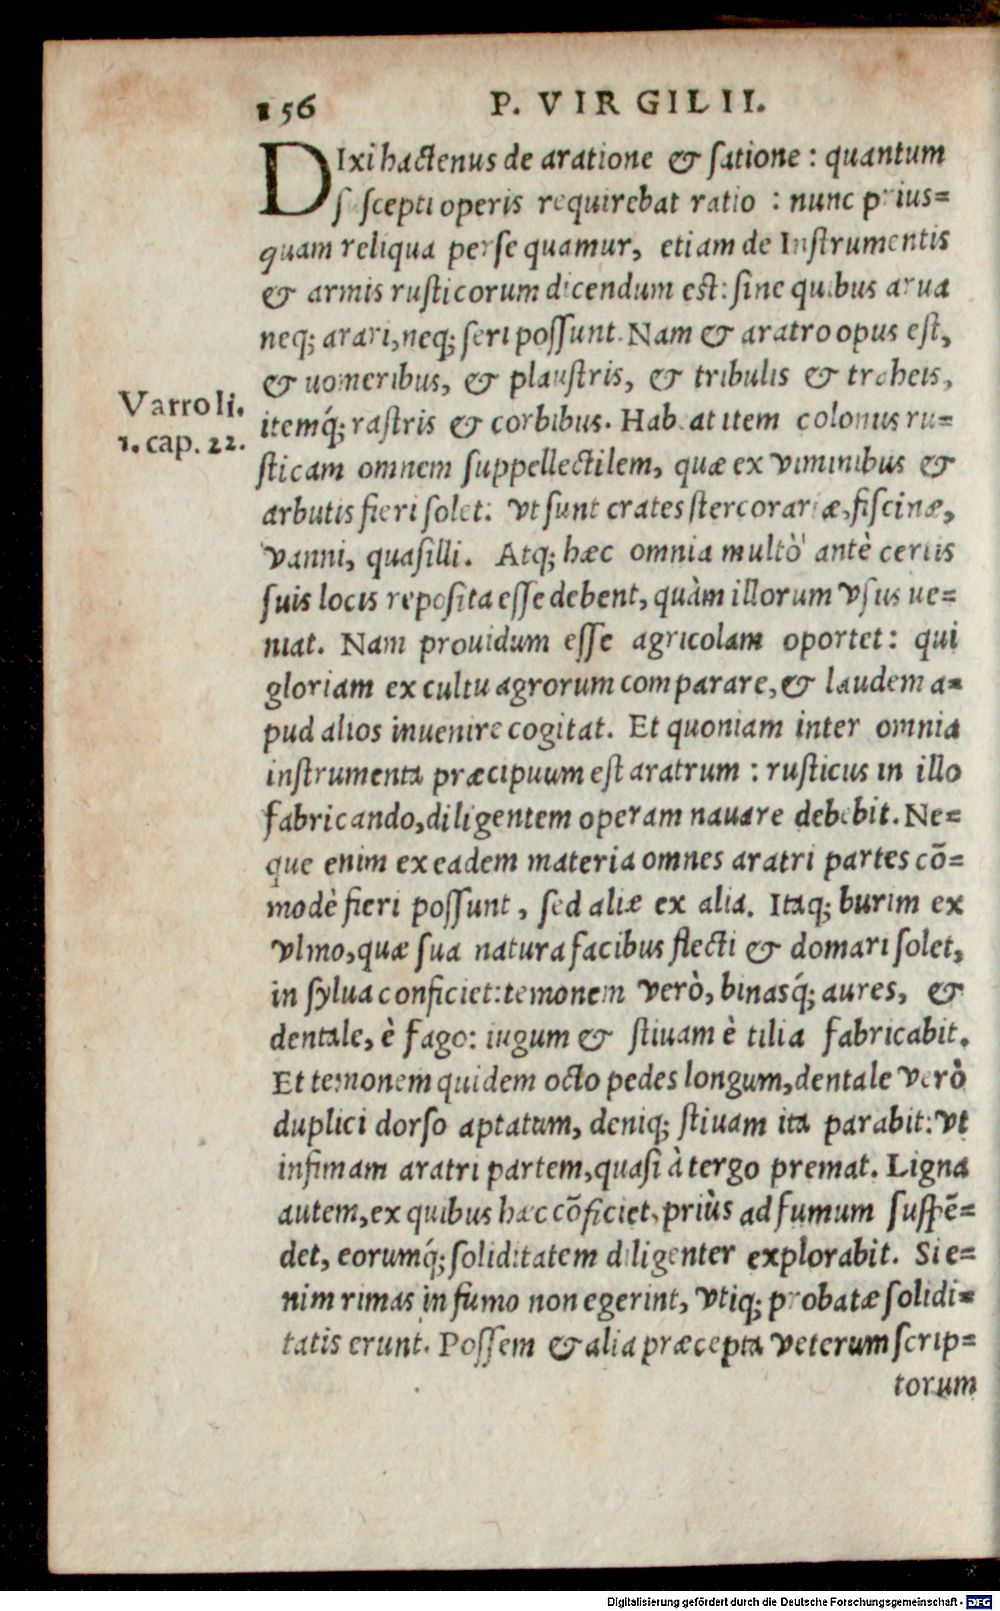 156 P. VIRGILII.
DIxi hactenus de aratione & satione : quantum
suscepti operis requirebat ratio : nunc prius=
quam reliqua persequamur, etiam de Instrumentis
& armis rusticorum dicendum est: sine quibus arua
neq; arari, neq; seri possunt. Nam & aratro opus est,
& uomeribus, & plaustris, & tribulis & traheis,
Varro li.
1. cap. 22.
itemq́; rastris & corbibus. Habeat item colonus ru=
sticam omnem suppellectilem, quæ ex viminibus &
arbutis fieri solet: vt sunt crates stercorariæ, fiscinæ,
vanni, quasilli. Atq; hæc omnia multò antè certis
suis locis reposita esse debent, quàm illorum vsus ue=
niat. Nam prouidum esse agricolam oportet: qui
gloriam ex cultu agrorum comparare, & laudem a=
pud alios inuenire cogitat. Et quoniam inter omnia
instrumenta præcipuum est aratrum : rusticus in illo
fabricando, diligentem operam nauare debebit. Ne=
que enim ex eadem materia omnes aratri partes cō=
modè fieri possunt, sed aliæ ex alia. Itaq; burim ex
vlmo, quæ sua natura facibus flecti & domari solet,
in sylua conficiet: temonem verò, binasq́; aures, &
dentale, è fago: iugum & stiuam è tilia fabricabit.
Et temonem quidem octo pedes longum, dentale verò
duplici dorso aptatum, deniq; stiuam ita parabit: vt
infimam aratri partem, quasi à tergo premat. Ligna
autem, ex quibus hæc cōficiet, priùs ad fumum suspē=
det, eorumq́; soliditatem diligenter explorabit. Si e=
nim rimas in fumo non egerint, vtiq; probatæ solidi=
tatis erunt. Possem & alia præcepta veterum scrip=
torum
Digitalisierung gefördert durch die Deutsche Forschungsgemeinschaft - DFG